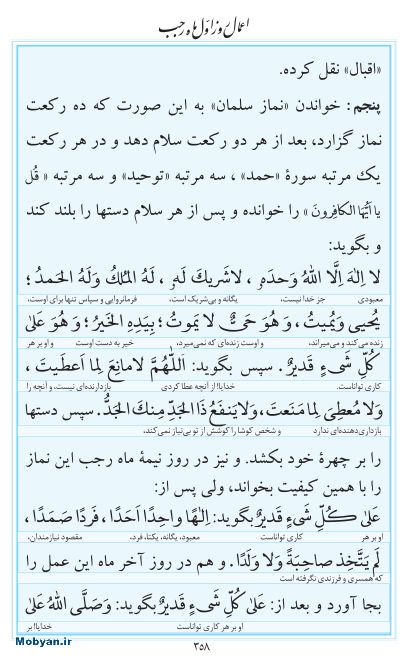 اعمال روز اول ماه رجب
«اقبال» نقل کرده.
پنجم: خواندن «نماز سلمان» به این صورت که ده رکعت
نماز گزارد، بعد از هر دو رکعت سلام دهد و در هر رکعت
یک مرتبه سورهٔ «حمد» ، سه مرتبه «توحید» و سه مرتبه « قُل
یا اَیُّهَا الکافِرونَ» را خوانده و پس از هر سلام دستها را بلند کند
و بگوید:
لا اِلٰهَ اِلَّا اللّٰهُ وَحدَهٗ ، لاشَریكَ لَهٗ ، لَهُ المُلكُ وَلَهُ الحَمدُ ؛
معبودی جز خدا نیست، یگانه و بی‌شریک است، فرمانروایی و سپاس تنها برای اوست،
یُحیی وَیُمیتُ ، وَهُوَ حَیٌّ لا یَموتُ ؛ بِیَدِهِ الخَیرُ ؛ وَهُوَ عَلیٰ
زنده می‌کند و می‌میراند، و اوست زنده‌ای که نمی‌میرد، خیر به دست اوست و او بر هر
کُلِّ شَیءٍ قَدیرٌ . سپس بگوید: اَللّٰهُمَّ لامانِعَ لِما اَعطَیتَ ،
کاری تواناست. خدایا! از آنچه عطا کردی بازدارنده‌ای نیست، و آنچه را
وَلا مُعطِیَ لِما مَنَعتَ ، وَلایَنفَعُ ذَا الجَدِّ مِنكَ الجَدُّ . سپس دستها
بازداری دهنده‌ای ندارد و شخص کوشا را کوشش از تو بی‌نیاز نمی‌کند،
را بر چهرهٔ خود بکشد. و نیز در روز نیمهٔ ماه رجب این نماز
را با همین کیفیت بخواند، ولی پس از:
عَلیٰ کُلِّ شَیءٍ قَدیرٌ بگوید: اِلٰهًا واحِدًا اَحَدًا ، فَردًا صَمَدًا ،
او بر هر کاری تواناست معبود، یگانه، یکتا، فرد، مقصود نیازمندان،
لَم یَتَّخِذ صاحِبَةً وَلا وَلَدًا . و هم در روز آخر ماه این عمل را
که همسری و فرزندی نگرفته است
بجا آورد و بعد از: عَلیٰ کُلِّ شَیءٍ قَدیرٌ بگوید: وَصَلَّی اللّٰهُ عَلیٰ
او بر هر کاری تواناست خدایا! بر
۳۵۸
Mobyan.ir